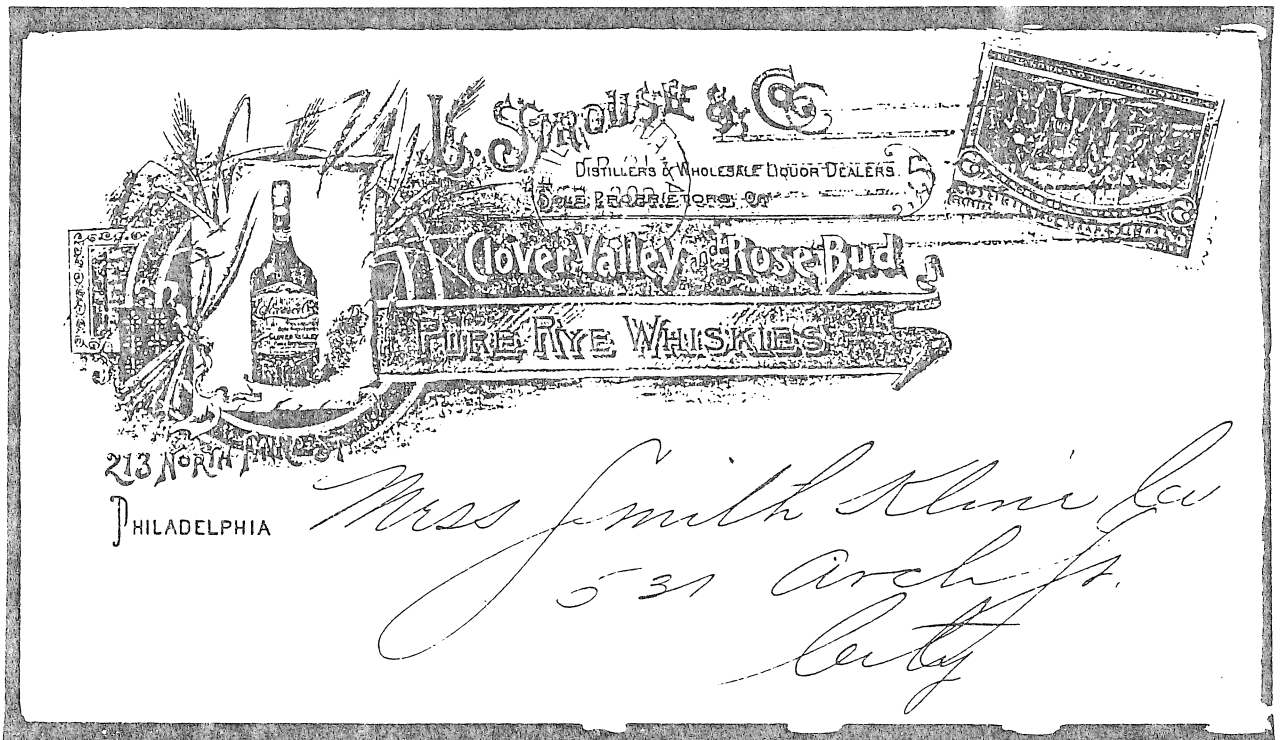 L. STROUSE & CO.
DISTILLERS & WHOLESALE LIQUOR DEALERS.
SOLE PROPRIETORS OF
Clover Valley Rose Bud
PURE RYE WHISKIES
CLOVER VALLEY
213 NORTH ST.
PHILADELPHIA
Mess Smith Kline Co
531 Arch St.
City